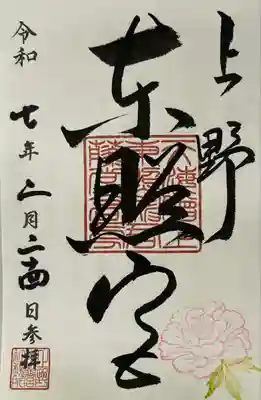 上野
東照宮
令和七年 月二十四日参拝